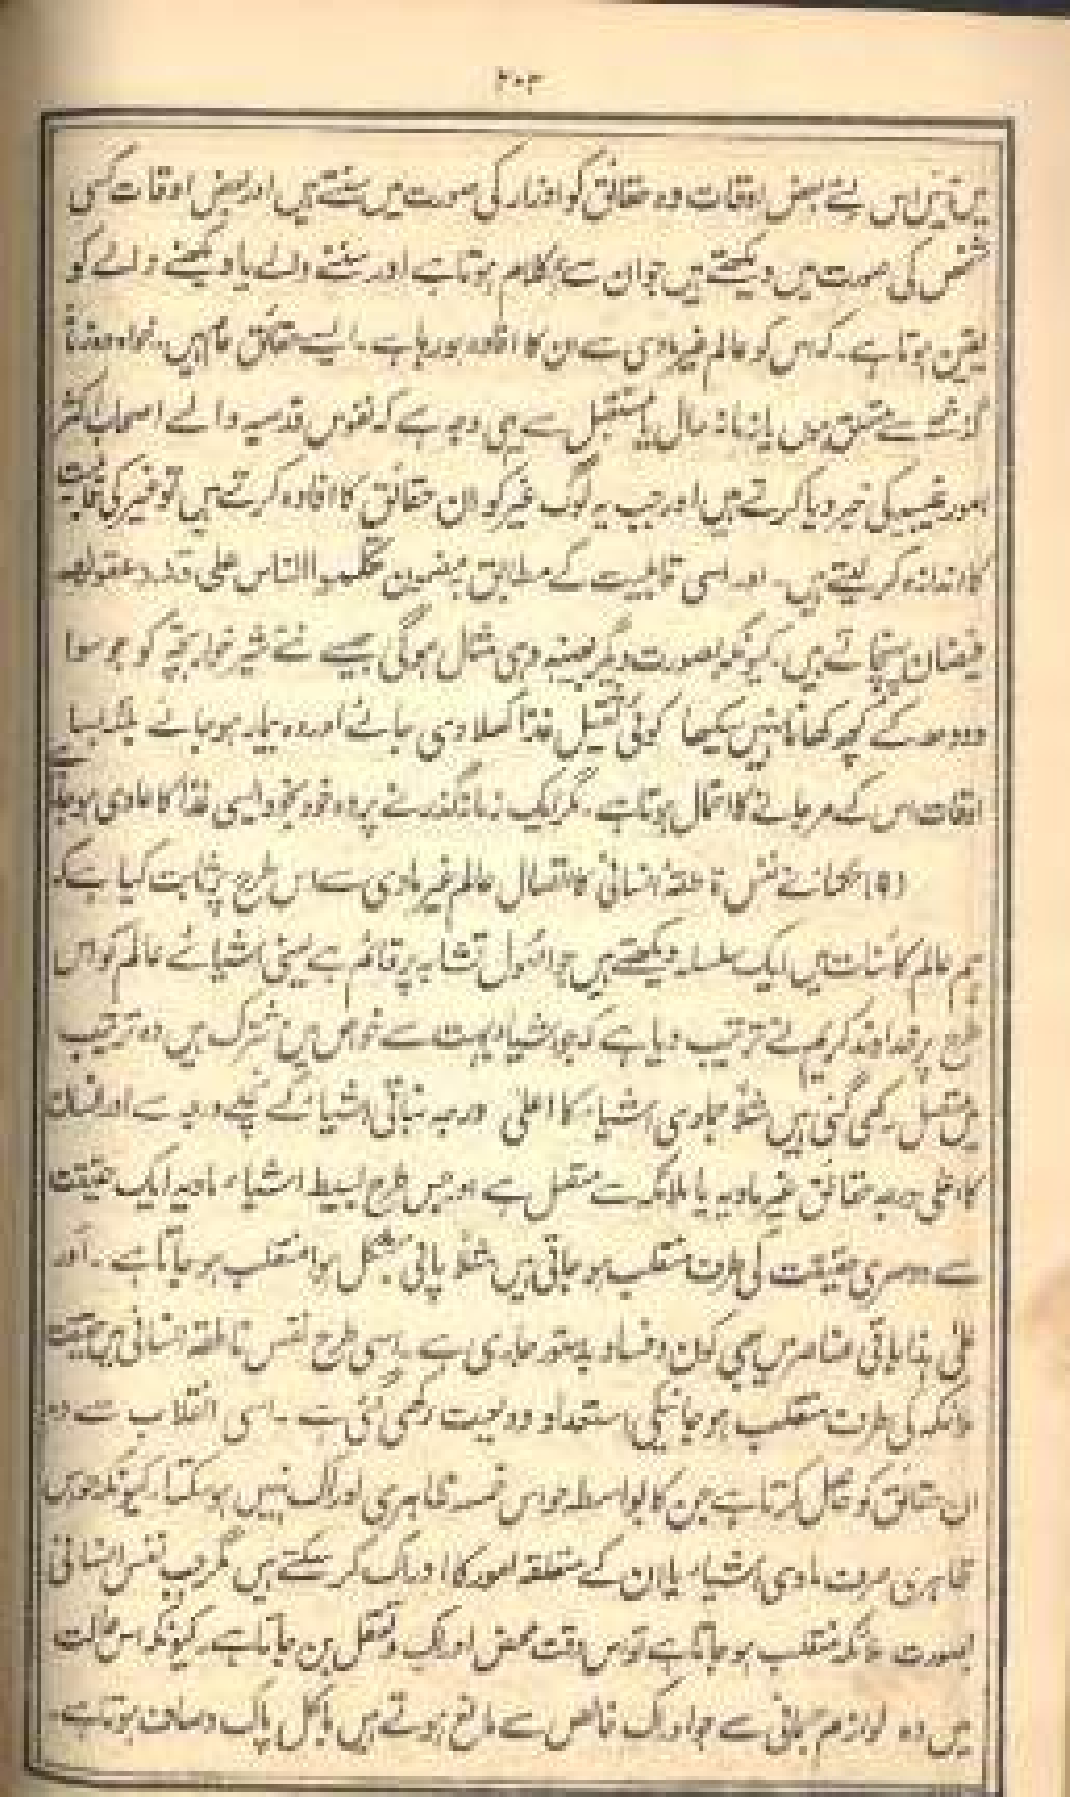 ۲۰۳
ہیں نہیں اس لئے بعض اوقات وہ حقائق کو انوار کی صورت میں سنتے ہیں اور بعض اوقات کسی
شخص کی صورت میں دیکھتے ہیں جو ان سے ہمکلام ہوتا ہے اور سننے والے یا دیکھنے والے کو
یقین ہوتا ہے۔ کہ اس کو عالم غیر مادی سے ان کا افادہ ہو رہا ہے۔ ایسے حقائق عام ہیں۔ خواہ وہ زمانہٴ
گذشتہ سے متعلق ہوں یا زمانہ حال یا مستقبل سے یہی وجہ ہے کہ نفوس قدسیہ والے اصحاب اکثر
امور غیبیہ کی خبر دیا کرتے ہیں اور جب یہ لوگ غیر کو ان حقائق کا افادہ کرتے ہیں تو غیر کی قابلیت
کا اندازہ کر لیتے ہیں۔ اور اسی قابلیت کے مطابق بمضمون تکلموا الناس علی قدر عقولهم
فیضان پہنچاتے ہیں۔ کیونکہ بصورت دیگر بعینہ وہی مثال ہوگی جیسے ننے شیر خوار بچہ کو جو سوا
دودھ کے کچھ کھانا نہیں سیکھا کوئی ثقیل غذا کھلا دی جائے اور وہ بیمار ہو جائے بلکہ بسا
اوقات اس کے مر جانے کا احتمال ہوتا ہے۔ مگر ایک زمانہ گذرنے پر وہ خود بخود ایسی غذا کا عادی ہو جاتا ہے
(۹) حکما نے نفس ناطقہ انسانی کا اتصال عالم غیر مادی سے اس طرح پر ثابت کیا ہے کہ
ہم عالم کائنات میں ایک سلسلہ دیکھتے ہیں جو اصول تشابہ پر قائم ہے یعنی اشیائے عالم کو اس
طرح پر خداوند کریم نے ترتیب دیا ہے کہ جو اشیاء بہت سے خواص میں مشترک ہیں وہ ترتیب
میں متصل رکھی گئی ہیں مثلاً جمادی اشیاء کا اعلیٰ درجہ نباتی اشیاء کے نچلے درجہ سے اور انسان
کا اعلی درجہ حقائق غیر مادیہ یا ملائکہ سے متصل ہے اور جس طرح بسیط اشیاء مادیہ ایک حقیقت
سے دوسری حقیقت کی طرف منقلب ہو جاتی ہیں مثلاً پانی بشکل ہوا منقلب ہو جاتا ہے۔ اور
علی ہذا باقی عناصر میں بھی کون و فساد بدستور جاری ہے۔ اسی طرح نفس ناطقہ انسانی میں حقیقت
ملائکہ کی طرف منقلب ہو جانیکی استعداد ودیعت رکھی گئی ہے۔ اسی انقلاب سے وہ
ان حقائق کو حاصل کرتا ہے جن کا بواسطہ حواس خمسہ ظاہری ادراک نہیں ہو سکتا۔ کیونکہ حواس
ظاہری صرف مادی اشیاء یا ان کے متعلقہ امور کا ادراک کر سکتے ہیں مگر جب نفس انسانی
بصورت ملائکہ منقلب ہو جاتا ہے تو اس وقت محض ادراک و تعقل بن جاتا ہے۔ کیونکہ اس حالت
میں وہ لوازم جسمانی سے جو ادراک خالص سے مانع ہوتے ہیں بالکل پاک و صاف ہوتا ہے۔